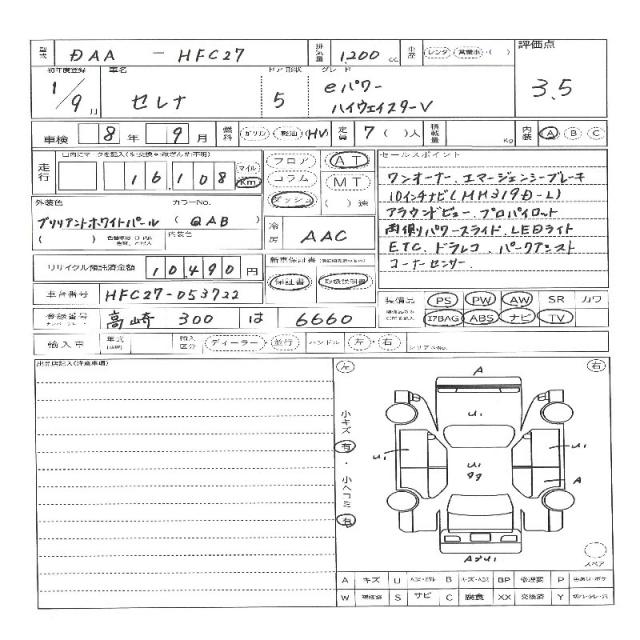 型式 DAA - HFC27 排気量 1,200 cc 車歴 レンタ・営業車・( ) 評価点
初年度登録 車名 ドア形状 グレード
1/9月 セレナ 5 eパワー ハイウェイスターV 3.5
車検 8年 9月 燃料 ガソリン・軽油・(HV) 定員 7( )人 積載量 Kg 内装 A B C
走行 16,108 マイル Km フロア コラム ダッシュ AT MT ( )速
セールスポイント
ワンオーナー. エマージェンシーブレーキ
10インチナビ(MM319D-L)
アラウンドビュー. プロパイロット
両側パワースライド. LEDライト
ETC. ドラレコ. パークアシスト
コーナーセンサー.
外装色 カラーNo.
ブリリアントホワイトパール (QAB)
( ) 内装色
冷房 AAC
リサイクル預託済金額 10,490円
新車保証書
保証書 取扱説明書
車台番号 HFC27-053722
装備品 PS PW AW SR カワ
登録番号 高崎 300 は 6660
ｴｱBAG ABS ナビ TV
輸入車 年式 輸入区分 ディーラー・並行 ハンドル 左・右 シリアルNo.
左 右
小キズ 有・小ヘコミ 有
A
U1
U1
U1
U1
A
スペア
A キズ U B C BP 要補修 P
W 補修跡 S サビ C 腐食 XX 交換済 Y